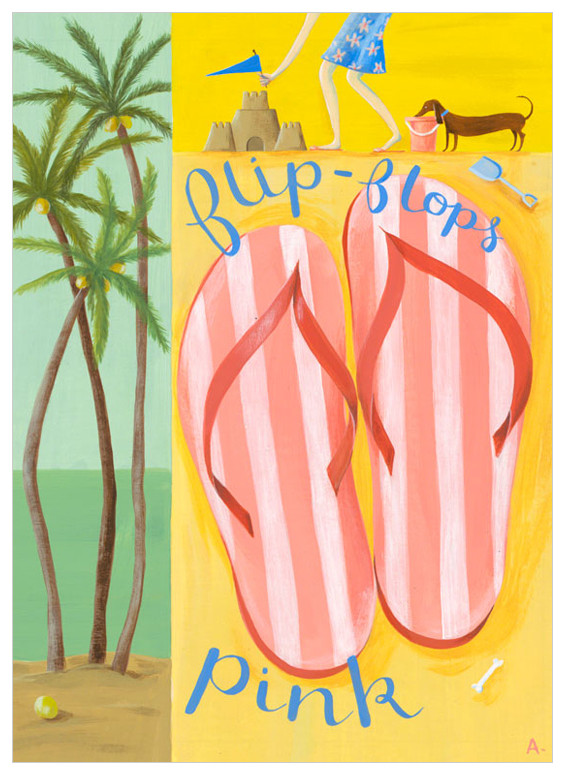 flip-flops
pink
A-